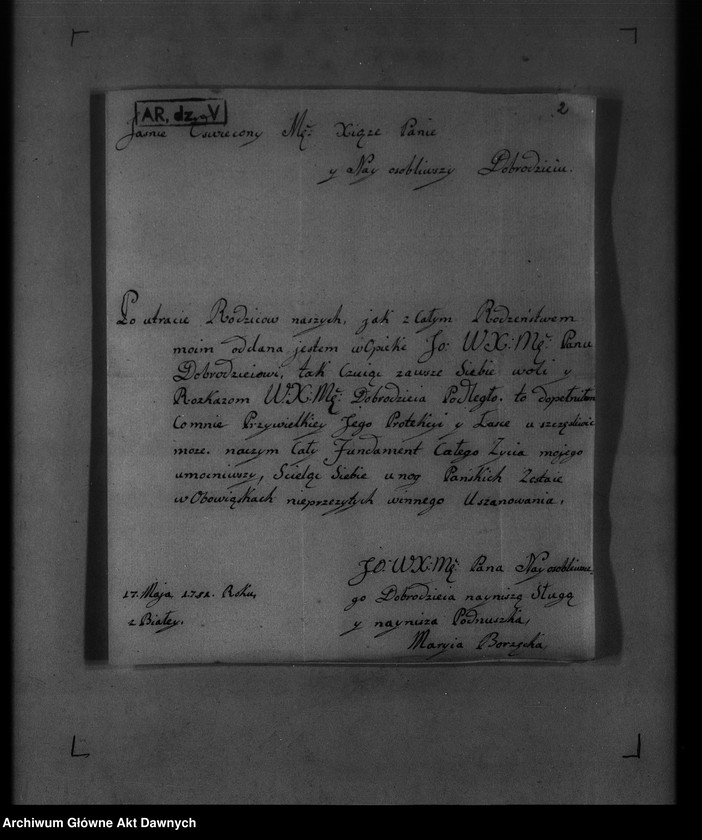 AR, dz. V
2
Jasnie Oswiecony Mę: Xiąze Panie
y Nay osobliwszy Dobrodzieiu.
Po utracie Rodzicow naszych, jak z Całym Rodzeństwem
moim oddana jestem w Opiekę Jo: WX: Mę: Panu
Dobrodzieiowi, tak Czuiąc zawsze Siebie woli y
Rozkazom WX: Mę: Dobrodzieia Podległo. to dopełniłam
Co mnie Przy wielkiey Jego Protekcyi y Łasce uszczęśliwić
moze. naczym Cały Fundament Całego Zycia mojego
umocniwszy, Scieląc Siebie u nog Pańskich Zostaie
w Obowiąskach nieprzezytych winnego Uszanowania,
JO: WX: Mę: Pana Nay osobliwsze
go Dobrodzieia nayniszą Sługą
y naynisza Podnuszka,
Maryia
17. Maja 1782. Roku,
z Białey.
Archiwum Główne Akt Dawnych